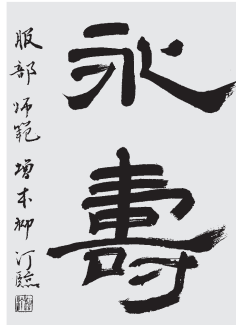 永壽
服部師範 増本柳汀臨